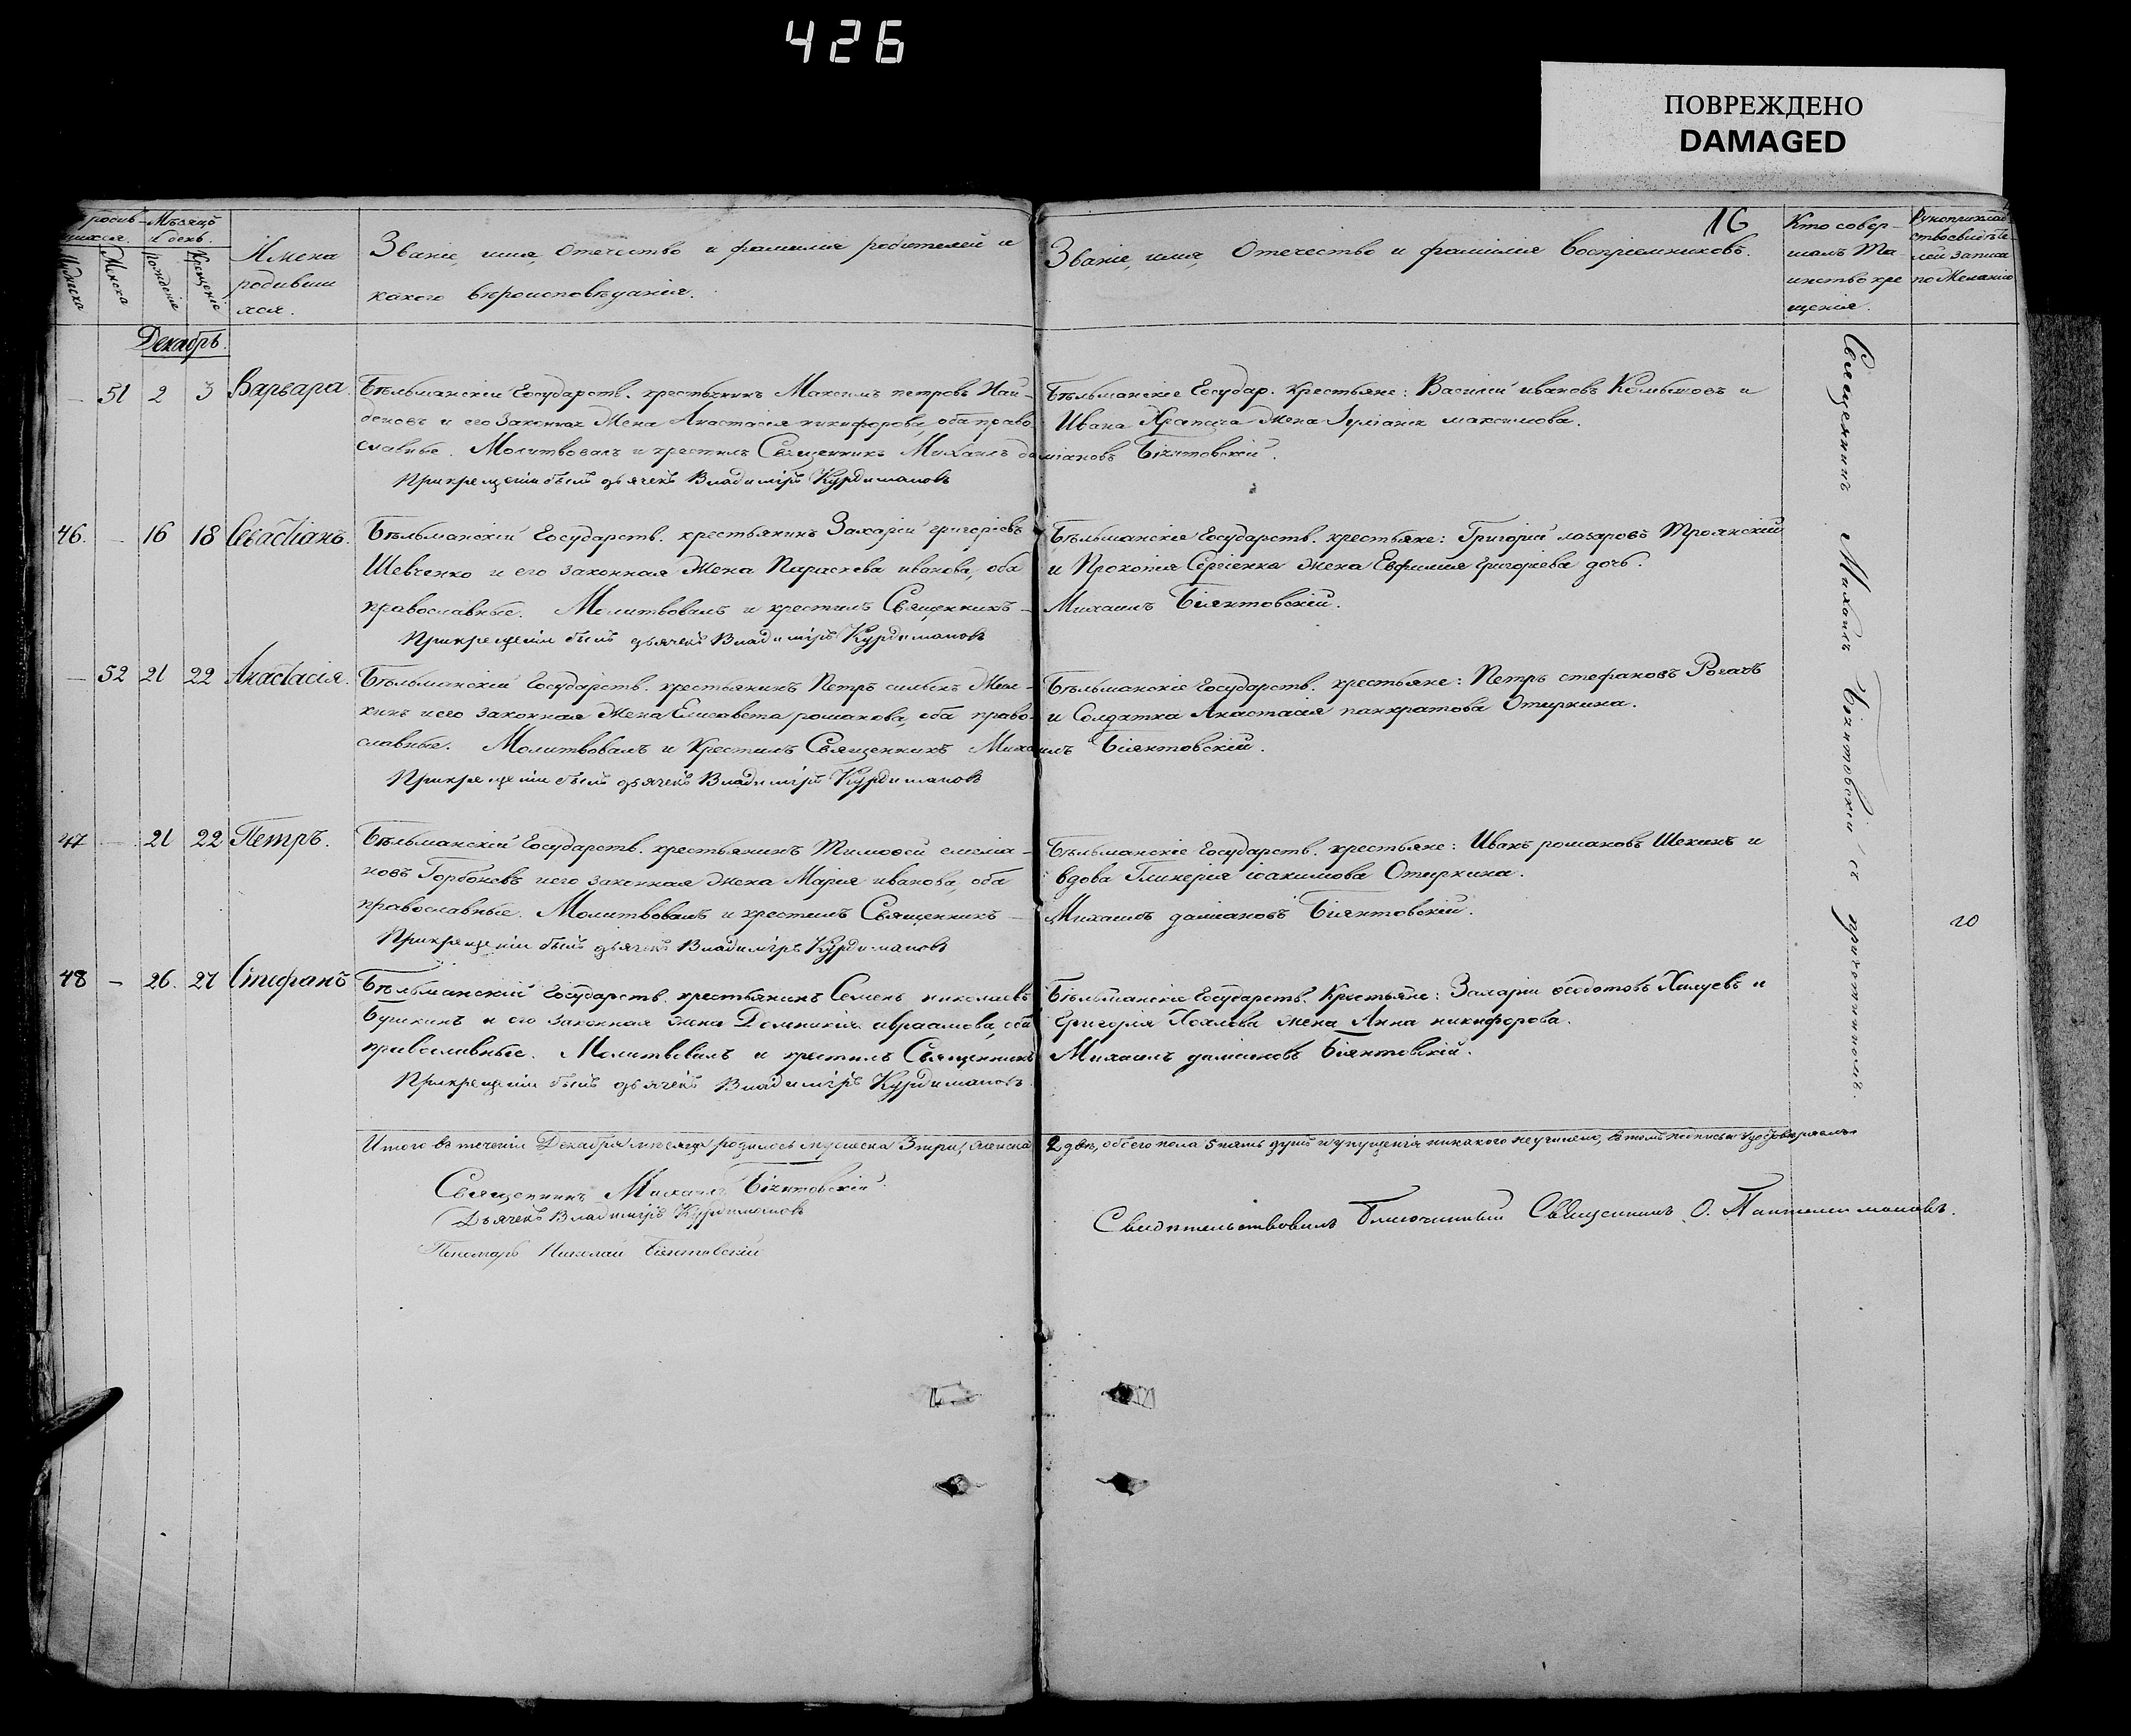 426
ПОВРЕЖДЕНО
DAMAGED
16
Мѣсяцъ
и день.
Имена
родивши
хся.
Званіе, имя, отечество и фамилія родителей и
какого вѣроисповѣданія.
Званіе, имя, Отечество и фамилія воспріемниковъ.
Кто совер-
шалъ Та
инство кре
щенія.
Рукоприклад
ство свидѣте-
лей записи
по желанію
Женска
рожденіе
Крещеніе
Декабрь.
51 2 3 Варвара. Бѣльманскій Государств. крестьянинъ Максимъ петровъ Най-
деновъ и его Законная Жена Анастасія никифорова, оба право
славные. Молитвовалъ и крестилъ Священникъ Михаилъ даміановъ Біянтовскій.
При крещеніи былъ дьячекъ Владиміръ Курдимановъ
Бѣльманскіе Государ. Крестьяне: Василій ивановъ и
Ивана жена максимова.
46. – 16 18 Севастіанъ. Бѣльманскій Государств. крестьянинъ Захарій григоріевъ
Шевченко и его законная Жена Параскева иванова, оба
православные. Молитвовалъ и крестилъ Священникъ –
При крещеніи былъ дьячекъ Владиміръ Курдимановъ
Бѣльманскіе Государств. крестьяне: Григорій лазаровъ Троянскій
и Прокопія Сергіенка жена Евфимія григоріева дочь.
Михаилъ Біянтовскій.
– 52 21 22 Анастасія. Бѣльманскій Государств. крестьянинъ Петръ
кинъ и его законная Жена Елисавета романова, оба право-
славные. Молитвовалъ и Крестилъ Священникъ Михаилъ Біянтовскій.
При крещеніи былъ дьячекъ Владиміръ Курдимановъ
Бѣльманскіе Государств. крестьяне: Петръ стефановъ Рогачъ
и Солдатка Анастасія панкратова Отыркина.
47 – 21 22 Петръ. Бѣльманскій Государств. крестьянинъ Тимофей емеліа-
новъ Горбоневъ и его законная Жена Марія иванова, оба
православные. Молитвовалъ и крестилъ Священникъ –
При крещеніи былъ дьячекъ Владиміръ Курдимановъ
Бѣльманскіе Государств. крестьяне: Иванъ романовъ Шекинъ и
вдова Гликерія іоакимова Отыркина.
Михаилъ даміановъ Біянтовскій.
20
48 – 26. 27 Стефанъ Бѣльманскій Государств. крестьянинъ Семенъ николаевъ
Бушкинъ и его законная жена Домникія авраамова, оба
православные. Молитвовалъ и крестилъ Священникъ
При крещеніи былъ дьячекъ Владиміръ Курдимановъ
Бѣльманскіе Государств. Крестьяне: Захарій феодотовъ и
Григорія Хохлова жена Анна никифорова.
Михаилъ даміановъ Біянтовскій.
Священникъ Михаилъ Біянтовскій съ причтомъ
Итого въ теченіи Декабря мѣсяца родилось мужеска 3 три, женска 2 двѣ, обоего пола 5 пять душъ и упущенія никакого неучинено, въ томъ подписью удостовѣряемъ
Священникъ Михаилъ Біянтовскій
Дьячекъ Владиміръ Курдимановъ
Пономарь Николай Біянтовскій
Свидѣтельствовалъ Благочинный Священникъ О. Пантелеимоновъ.